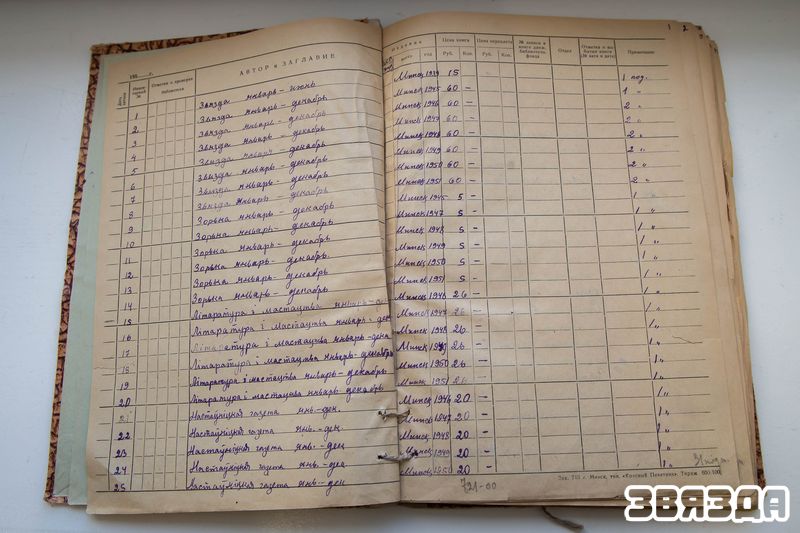 195 г. АВТОР и ЗАГЛАВИЕ
Отметки о проверке библиотеки
издания
место год
Цена книги Цена переплета
Руб. Коп. Руб. Коп.
Отдел
Примечание
1 2
1 Звязда январь - июнь Минск 1939 15 1 под.
2 Звязда январь - декабрь Минск 1945 60 - 1 "
3 Звязда январь - декабрь Минск 1946 60 - 2 "
4 Звязда январь - декабрь Минск 1947 60 - 2 "
5 Звязда январь - декабрь Минск 1948 60 - 2 "
6 Звязда январь - декабрь Минск 1949 60 - 2 "
7 Звязда январь - декабрь Минск 1950 60 - 2 "
8 Звязда январь - декабрь Минск 1951 60 - 2 "
9 Зорька январь - декабрь Минск 1945 5 - 1 "
10 Зорька январь - декабрь Минск 1947 5 - 1 "
11 Зорька январь - декабрь Минск 1948 5 - 1 "
12 Зорька январь - декабрь Минск 1949 5 - 1 "
13 Зорька январь - декабрь Минск 1950 5 - 1 "
14 Зорька январь - декабрь Минск 1951 5 - 1 "
15 Літаратура і мастацтва январь - дек Минск 1946 26 - 1 "
16 Літаратура і мастацтва январь - дек Минск 1947 26 - 1 "
17 Літаратура і мастацтва январь - дек Минск 1948 26 - 1 "
18 Літаратура і мастацтва январь - дека Минск 1949 26 - 1 "
19 Літаратура і мастацтва январь - декабрь Минск 1950 26 - 1 "
20 Літаратура і мастацтва январь - декабрь Минск 1951 26 - 1 "
21 Настаўніцкая газета янв. - дек. Минск 1946 20 - 1 "
22 Настаўніцкая газета янв. - дек. Минск 1947 20 - 1 "
23 Настаўніцкая газета янв. - дек Минск 1948 20 - 1 "
24 Настаўніцкая газета янв. - дек Минск 1949 20 - 1 "
25 Настаўніцкая газета янв. - дек Минск 1950 20 - 1 "
721-00
Минск, тип. «Красный Печатник». Тираж
ЗВЯЗДА